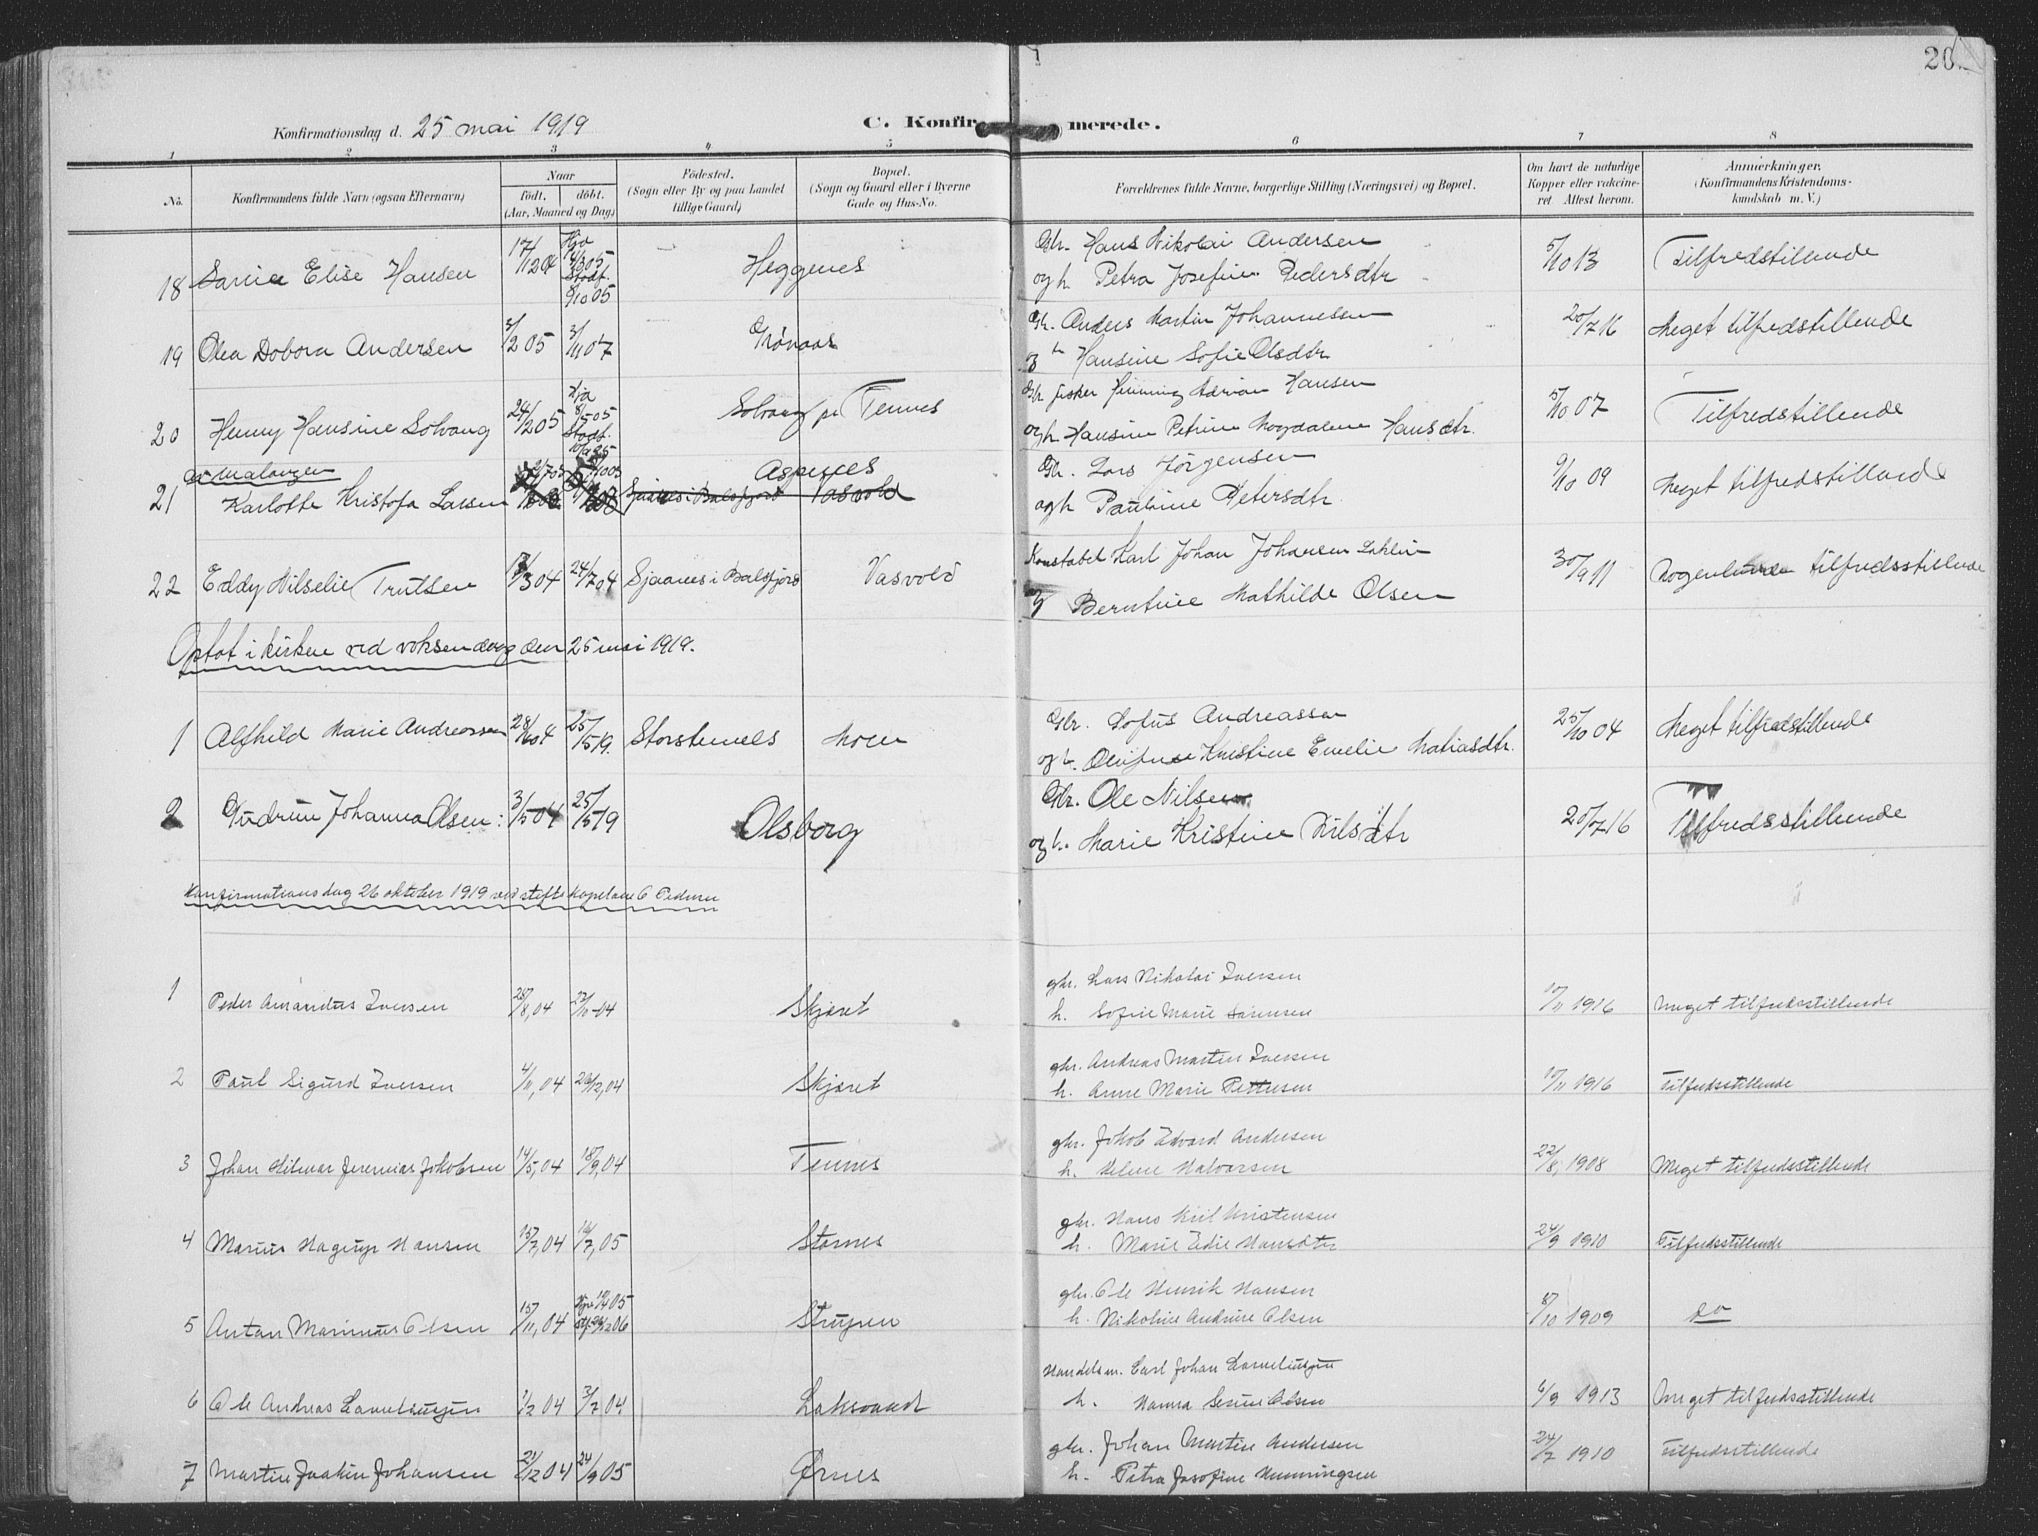 20
Konfirmationsdag d. 25 mai 1919 C. Konfirmerede.
1 2 3 4 5 6 7 8
No. Konfirmandens fulde Navn (ogsaa Efternavn) Naar födt. döbt. (Aar, Maaned og Dag.) Födested. (Sogn eller By og paa Landet tillige Gaard.) Bopæl. (Sogn og Gaard eller i Byerne Gade og Hus-No. Forældrenes fulde Navne, borgerlige Stilling (Næringsvei) og Bopæl. Om havt de naturlige Kopper eller vakcineret Attest herom. Anmærkninger. (Konfirmandens Kristendomskundskab m. V.)
Gbr. Hans Nikolai Andersen
18 Elise Hansen 17/12 04 Hjd 14/3 05 Stadf. 8/10 05 Heggenes og h Petra Josefine Pedersdtr 5/10 13 Tilfredstillende
Gbr. Anders Martin Johannessen
19 Olea Dobora Andersen 3/2 05 3/11 07 Grønaas og h Hansine Sofie Olsdtr 20/7 16 Meget tilfredstillende
Gbr fisker Henning Adrian Hansen
20 Henny Hansine Solvang 24/2 05 Hjd 8/5 05 Stadf. Solvang pr Tennes og h Hansine Petrine Magdalene Hansdtr. 5/10 07 Tilfredstillende
av Malangen Aspenes Gbr. Lars Jörgensen
21 Karlotte Kristofa Larsen Sjaanes i Balsfjord Vasvold og h Pauline Petersdtr 9/10 09 Meget tilfredstillende
Konstabel Karl Johan Johansen
22 Eddy Nilselie Trulsen 13/3 04 24/7 04 Sjaanes i Balsfjord Vasvold og Berntine Mathilde Olsen 30/9 11 Nogenlunde tilfredsstillende
Optat i kirken ved voksendaap den 25 mai 1919.
Gbr. Lofus Andreassen
1 Alfhild Marie Andreassen 28/10 04 25/5 19. Storstennes Moen og h. Kristine Emelie Matiasdtr. 25/10 04 Meget tilfredstillende
Gbr. Ole Nilsen
2 Gudrun Johanna Olsen: 3/5 04 25/5 19 Olsborg og h. Marie Kristine Nilsdtr 20/7 16 Tilfredsstillende
Konfirmationsdag 26 oktober 1919 ved stiftskapelan C Pedersen
gbr. Lars Nikolai Iversen
1 Peder Amandus Iversen 28/8, 04 27/11 - 04 Skjæret h. Sofie Marie Sørensen 10/11 1916 Meget tilfredsstillende
gbr. Andreas Martin Iversen
2 Paul Sigurd Iversen 4/11, 04 26/12, 04 Skjæret h. Anne Marie Pettersen 10/11 1916 Tilfredsstillende
gbr. Jakob Edvard Andersen
3 Johan Hilmar Jeremias Jakobsen 14/5, 04 18/9, 04 Tennes h. Helene Halvorsen 22/8, 1908 Meget tilfredsstillende
gbr. Hans Kristensen
4 Marius Hagerup Hansen 15/7, 04 16/7, 05 Stornes h. Marie Edie Hansdtr 24/9 1910 Tilfredsstillende
gbr. Ole Henrik Hansen
5 Anton Marinus Olsen 15/11, 04 Strupen h. Nikoline Andrine Olsen 8/10 1909 do
Handelsm. Carl Johan Corneliussen
6 Ole Andreas Corneliussen 1/2 04 3/7 04 Laksvandt h. Hanna Serine Olsen 6/9 1913 Meget tilfredsstillende
gbr. Johan Martin Andersen
7 Martin Joakim Johansen 21/12 04 24/9 05 Ørnes h. Petra Josofine Henningsen 24/7 1910 Tilfredsstillende